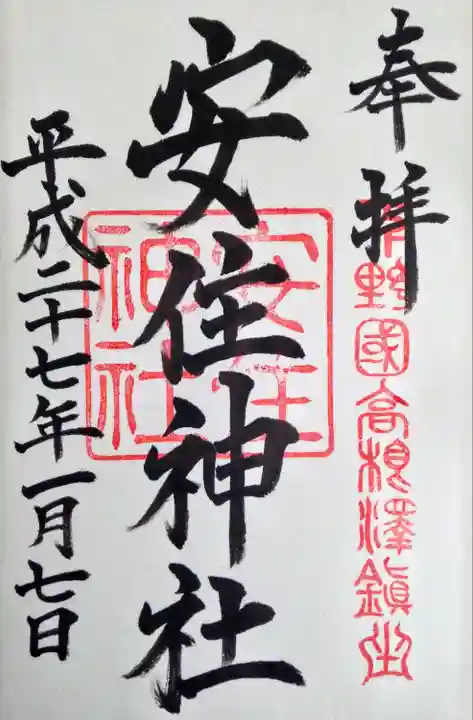 奉拝
下野國高根澤鎮坐
安住神社
安住神社
平成二十七年一月七日